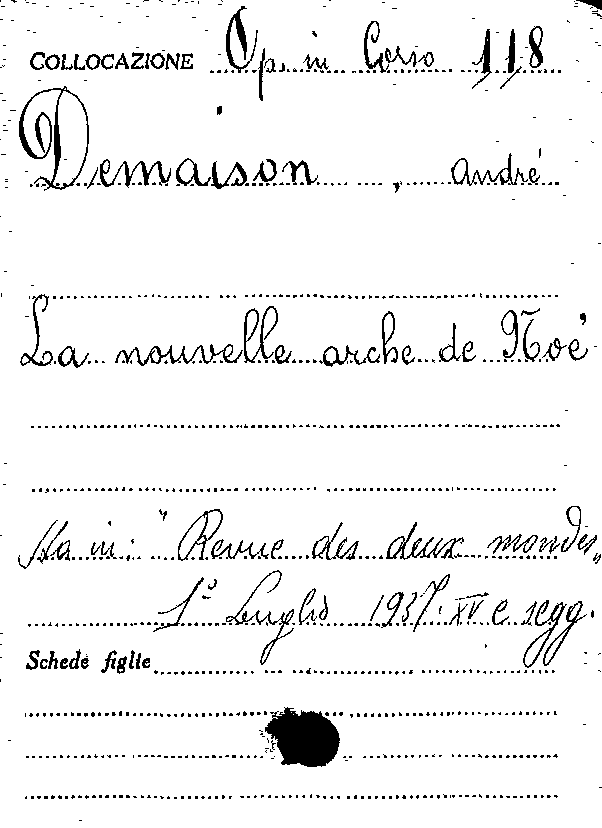 COLLOCAZIONE Op. in Corso 118
Demaison, André
La nouvelle arche de Noé
Sta in: "Revue des deux mondes„
1° Luglio 1937. XV e segg.
Schede figlie